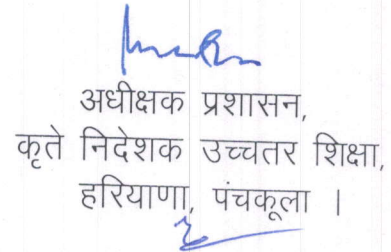 अधीक्षक प्रशासन,
कृते निदेशक उच्चतर शिक्षा,
हरियाणा, पंचकूला ।